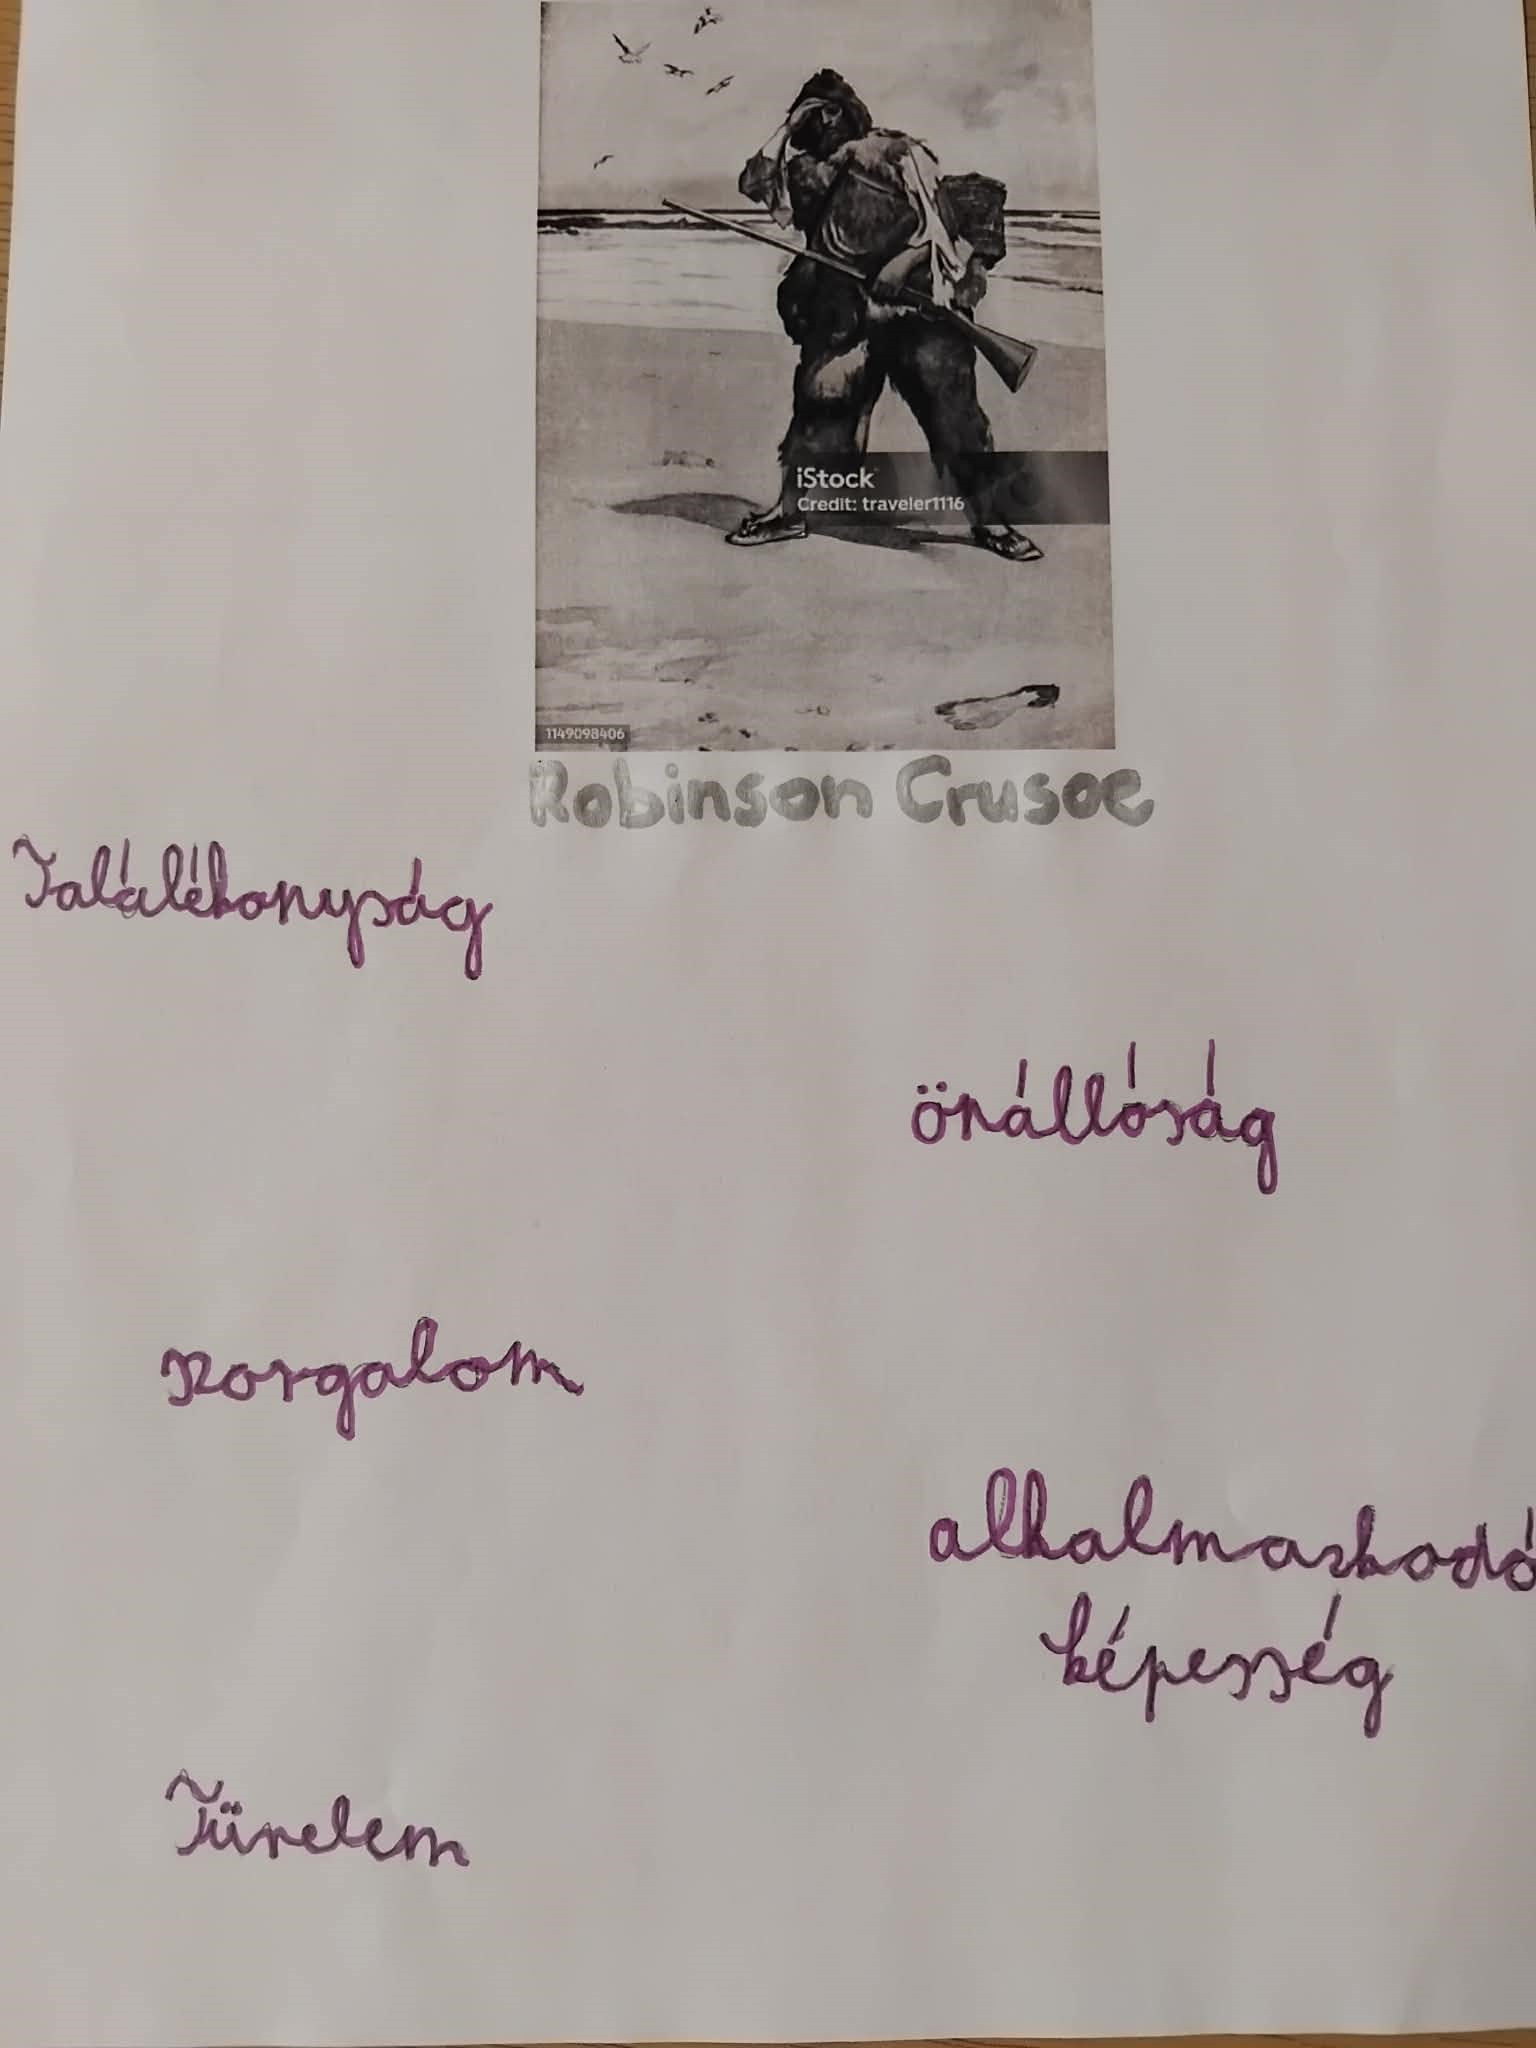 iStock
Credit: traveler1116
1149098406
Robinson Crusoe
Találékonyság
önállóság
szorgalom
alkalmazkodó
képesség
Türelem